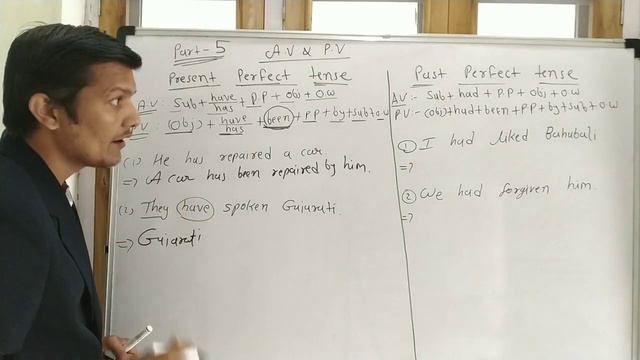 Part-5 A.V & P.V
Present Perfect tense
AV:- Sub + have/has + P.P + Obj + O.W
PV:- (Obj) + have/has + been + P.P + by + sub + O.W
(1) He has repaired a car.
=> A car has been repaired by him.
(2) They have spoken Gujarati.
=> Gujarati
Past Perfect tense
AV:- Sub + had + P.P + Obj + O.W
P.V:- (Obj) + had + been + P.P + by + sub + O.W
① I had liked Bahubali
=>
② We had forgiven him.
=>